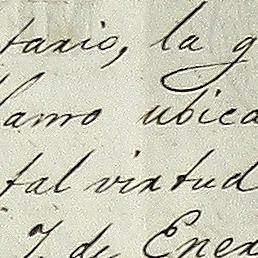 tario, la g
llamo ubica
tal virtud
7. de Ener